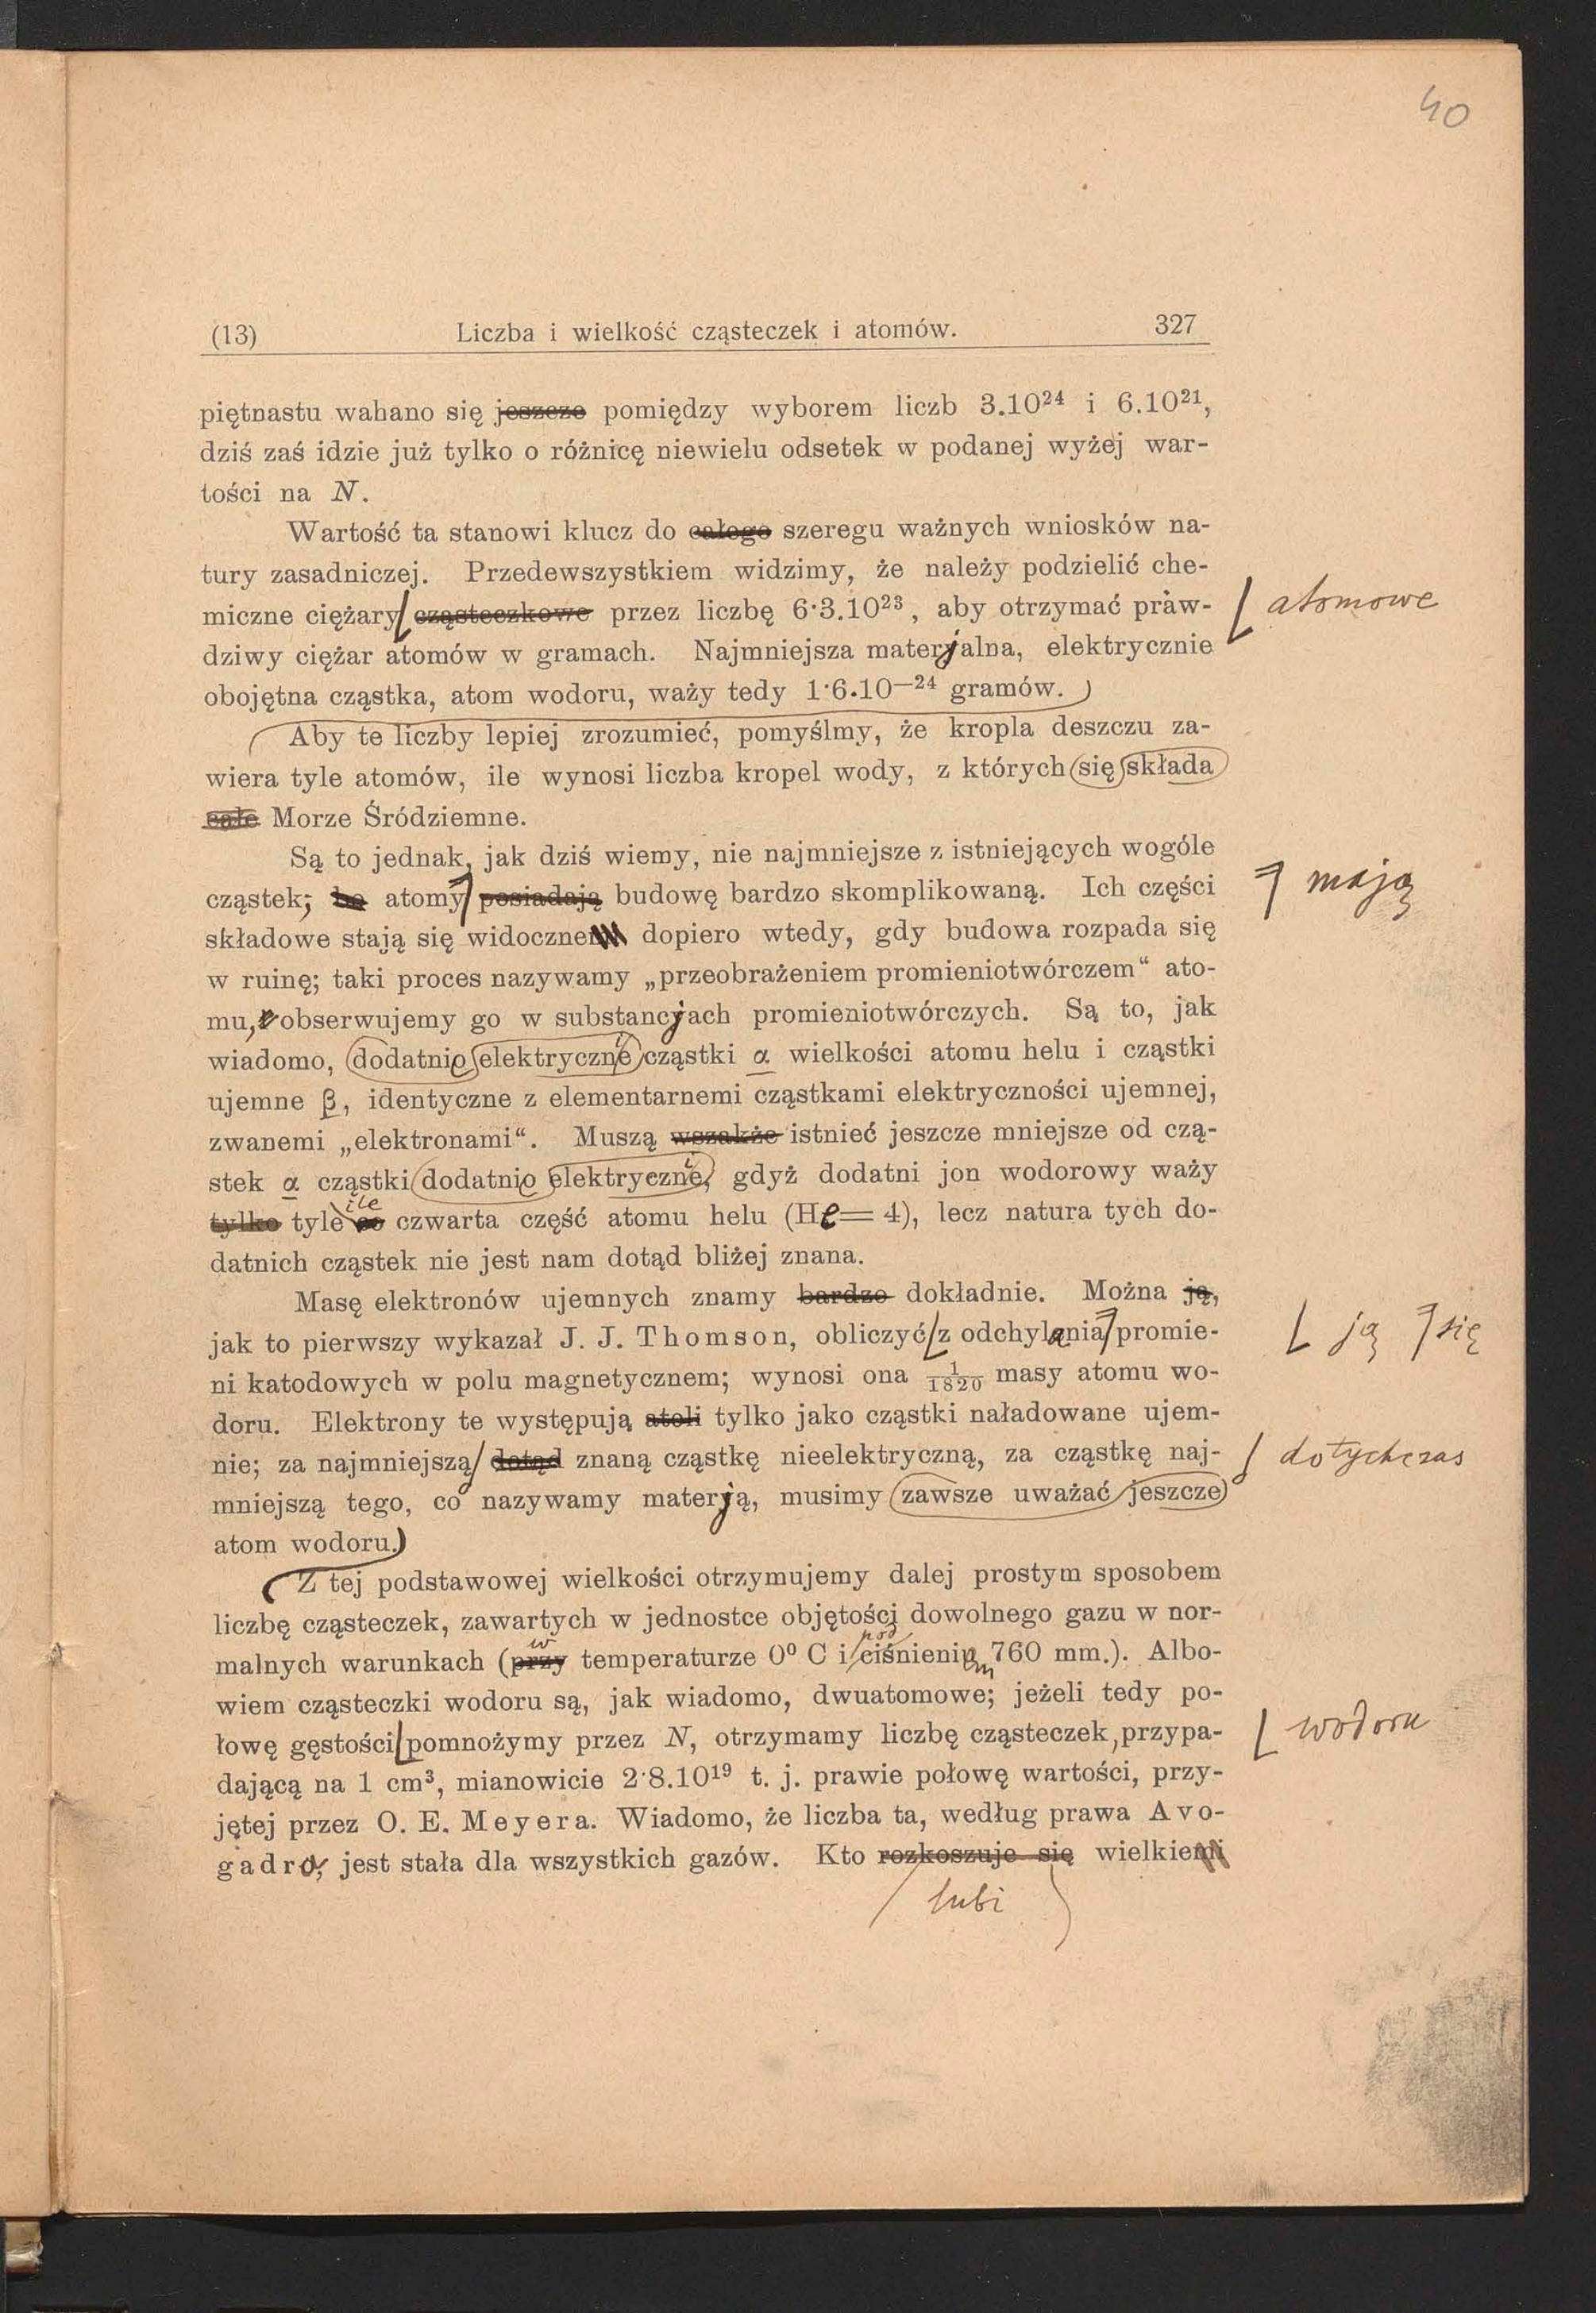 40
(13) Liczba i wielkość cząsteczek i atomów. 327
piętnastu wahano się jeszcze pomiędzy wyborem liczb 3.10²⁴ i 6.10²¹,
dziś zaś idzie już tylko o różnicę niewielu odsetek w podanej wyżej war-
tości na N.
Wartość ta stanowi klucz do całego szeregu ważnych wniosków na-
tury zasadniczej. Przedewszystkiem widzimy, że należy podzielić che-
miczne ciężary cząsteczkowe przez liczbę 6·3.10²³, aby otrzymać praw- atomowe
dziwy ciężar atomów w gramach. Najmniejsza materjalna, elektrycznie
obojętna cząstka, atom wodoru, waży tedy 1·6.10—²⁴ gramów.
Aby te liczby lepiej zrozumieć, pomyślmy, że kropla deszczu za-
wiera tyle atomów, ile wynosi liczba kropel wody, z których się składa
całe Morze Śródziemne.
Są to jednak, jak dziś wiemy, nie najmniejsze z istniejących wogóle
cząstek; bo atomy posiadają budowę bardzo skomplikowaną. Ich części mają
składowe stają się widoczne dopiero wtedy, gdy budowa rozpada się
w ruinę; taki proces nazywamy „przeobrażeniem promieniotwórczem“ ato-
mu, obserwujemy go w substancjach promieniotwórczych. Są to, jak
wiadomo, dodatnio elektryczne cząstki α wielkości atomu helu i cząstki
ujemne β, identyczne z elementarnemi cząstkami elektryczności ujemnej,
zwanemi „elektronami“. Muszą wszakże istnieć jeszcze mniejsze od czą-
stek α cząstki dodatnio elektryczne, gdyż dodatni jon wodorowy waży
ile
tylko tyle co czwarta część atomu helu (He = 4), lecz natura tych do-
datnich cząstek nie jest nam dotąd bliżej znana.
Masę elektronów ujemnych znamy bardzo dokładnie. Można ją,
jak to pierwszy wykazał J. J. Thomson, obliczyć z odchylania promie- ją się
ni katodowych w polu magnetycznem; wynosi ona 1/1820 masy atomu wo-
doru. Elektrony te występują atoli tylko jako cząstki naładowane ujem-
nie; za najmniejszą dotąd znaną cząstkę nieelektryczną, za cząstkę naj- dotychczas
mniejszą tego, co nazywamy materją, musimy zawsze uważać jeszcze
atom wodoru.
Z tej podstawowej wielkości otrzymujemy dalej prostym sposobem
liczbę cząsteczek, zawartych w jednostce objętości dowolnego gazu w nor-
w pod
malnych warunkach (przy temperaturze 0⁰ C i ciśnieniem 760 mm.). Albo-
wiem cząsteczki wodoru są, jak wiadomo, dwuatomowe; jeżeli tedy po-
łowę gęstości pomnożymy przez N, otrzymamy liczbę cząsteczek, przypa- wodoru
dającą na 1 cm³, mianowicie 2·8.10¹⁹ t. j. prawie połowę wartości, przy-
jętej przez O. E. Meyera. Wiadomo, że liczba ta, według prawa Avo-
gadro, jest stała dla wszystkich gazów. Kto rozkoszuje się wielkiemi
lubi